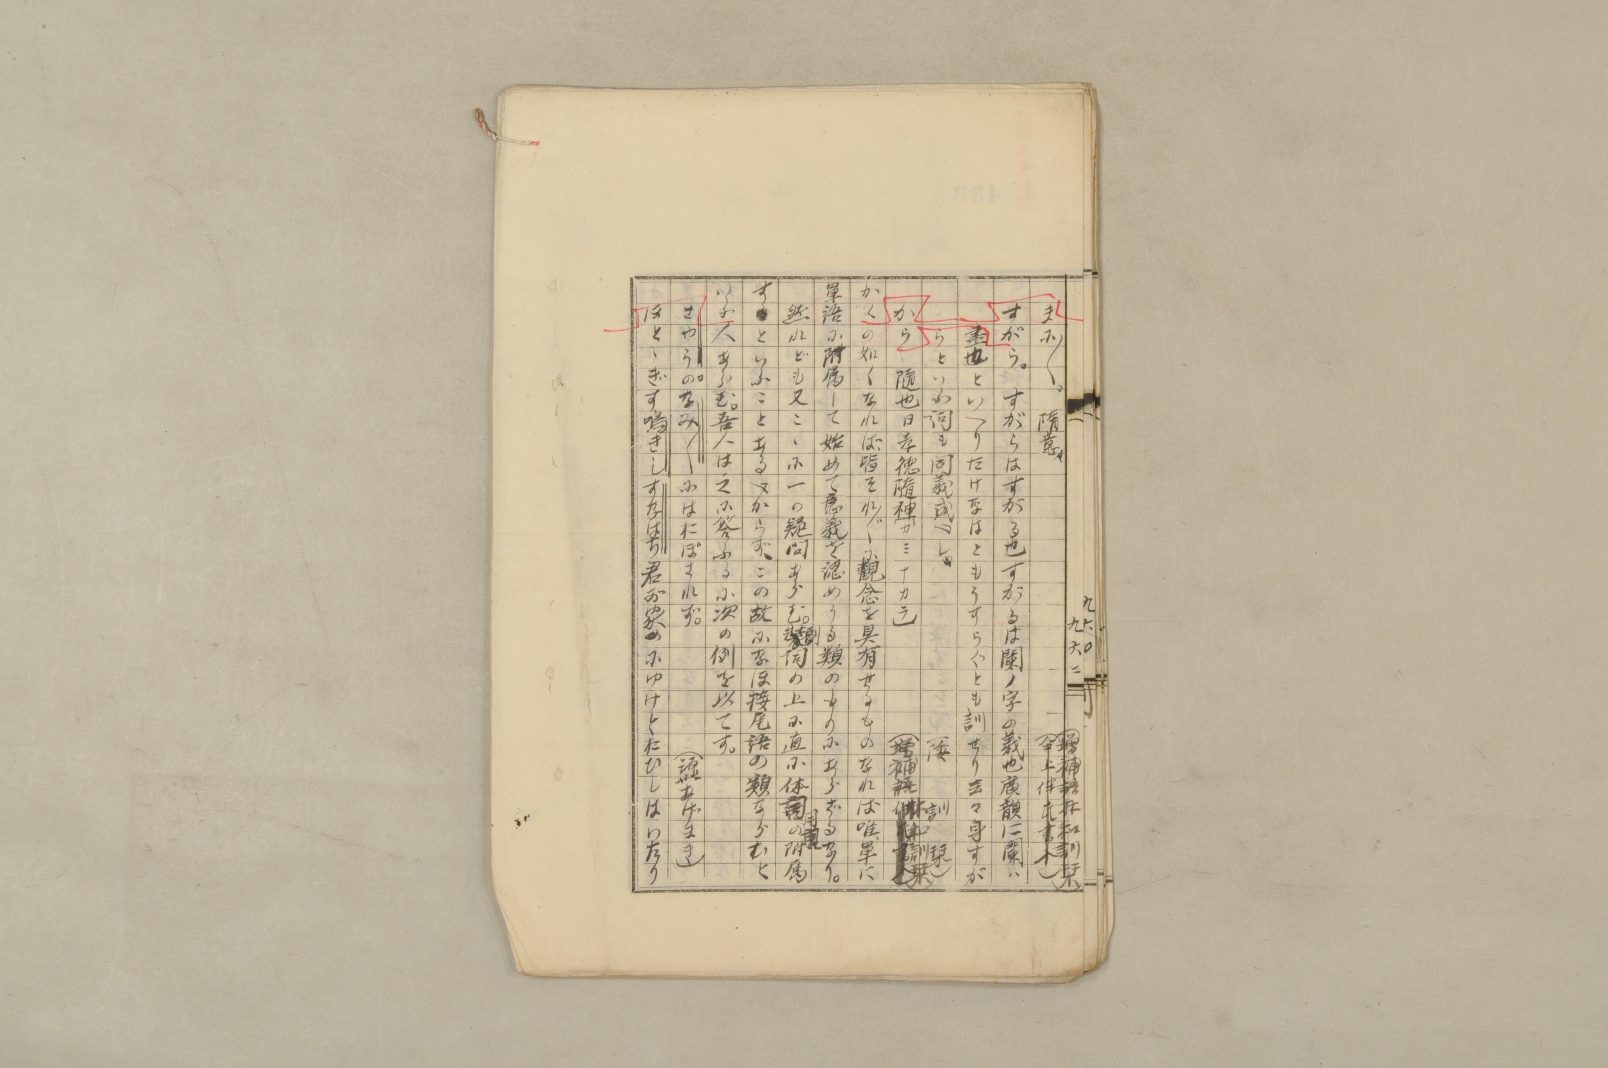 まに〳〵。 隋意
(増補語林和訓栞
(仝上伴氏書入)
すがら。すがらはすがる也すがるは闌ノ字の義也廣韻に闌ハ
盡也といへりたけなはともうすらぐとも訓せり云々身すが
らといふ詞も同義成べし
から 隨也日孝徳隨神カミナカラ
かくの如くなれば皆それ〴〵に觀念を具有せるものなれば唯、單に
單語に附属して始めて意義を認めうる類のものにあらざるなり。
然れども又こゝに一の疑問あらむ。副詞の上に直に体言用言の附属
すといふことあるべからず、この故になほ接尾語の類ならむと
いふ人あらむ。吾人は之に答ふるに次の例を以てす。
さやうのなみ〳〵にはおぼされず。
(源、あげまき)
ほとゝぎす鳴きしすなはち君が家にゆけとおひしはいたり
九六〇
九六二